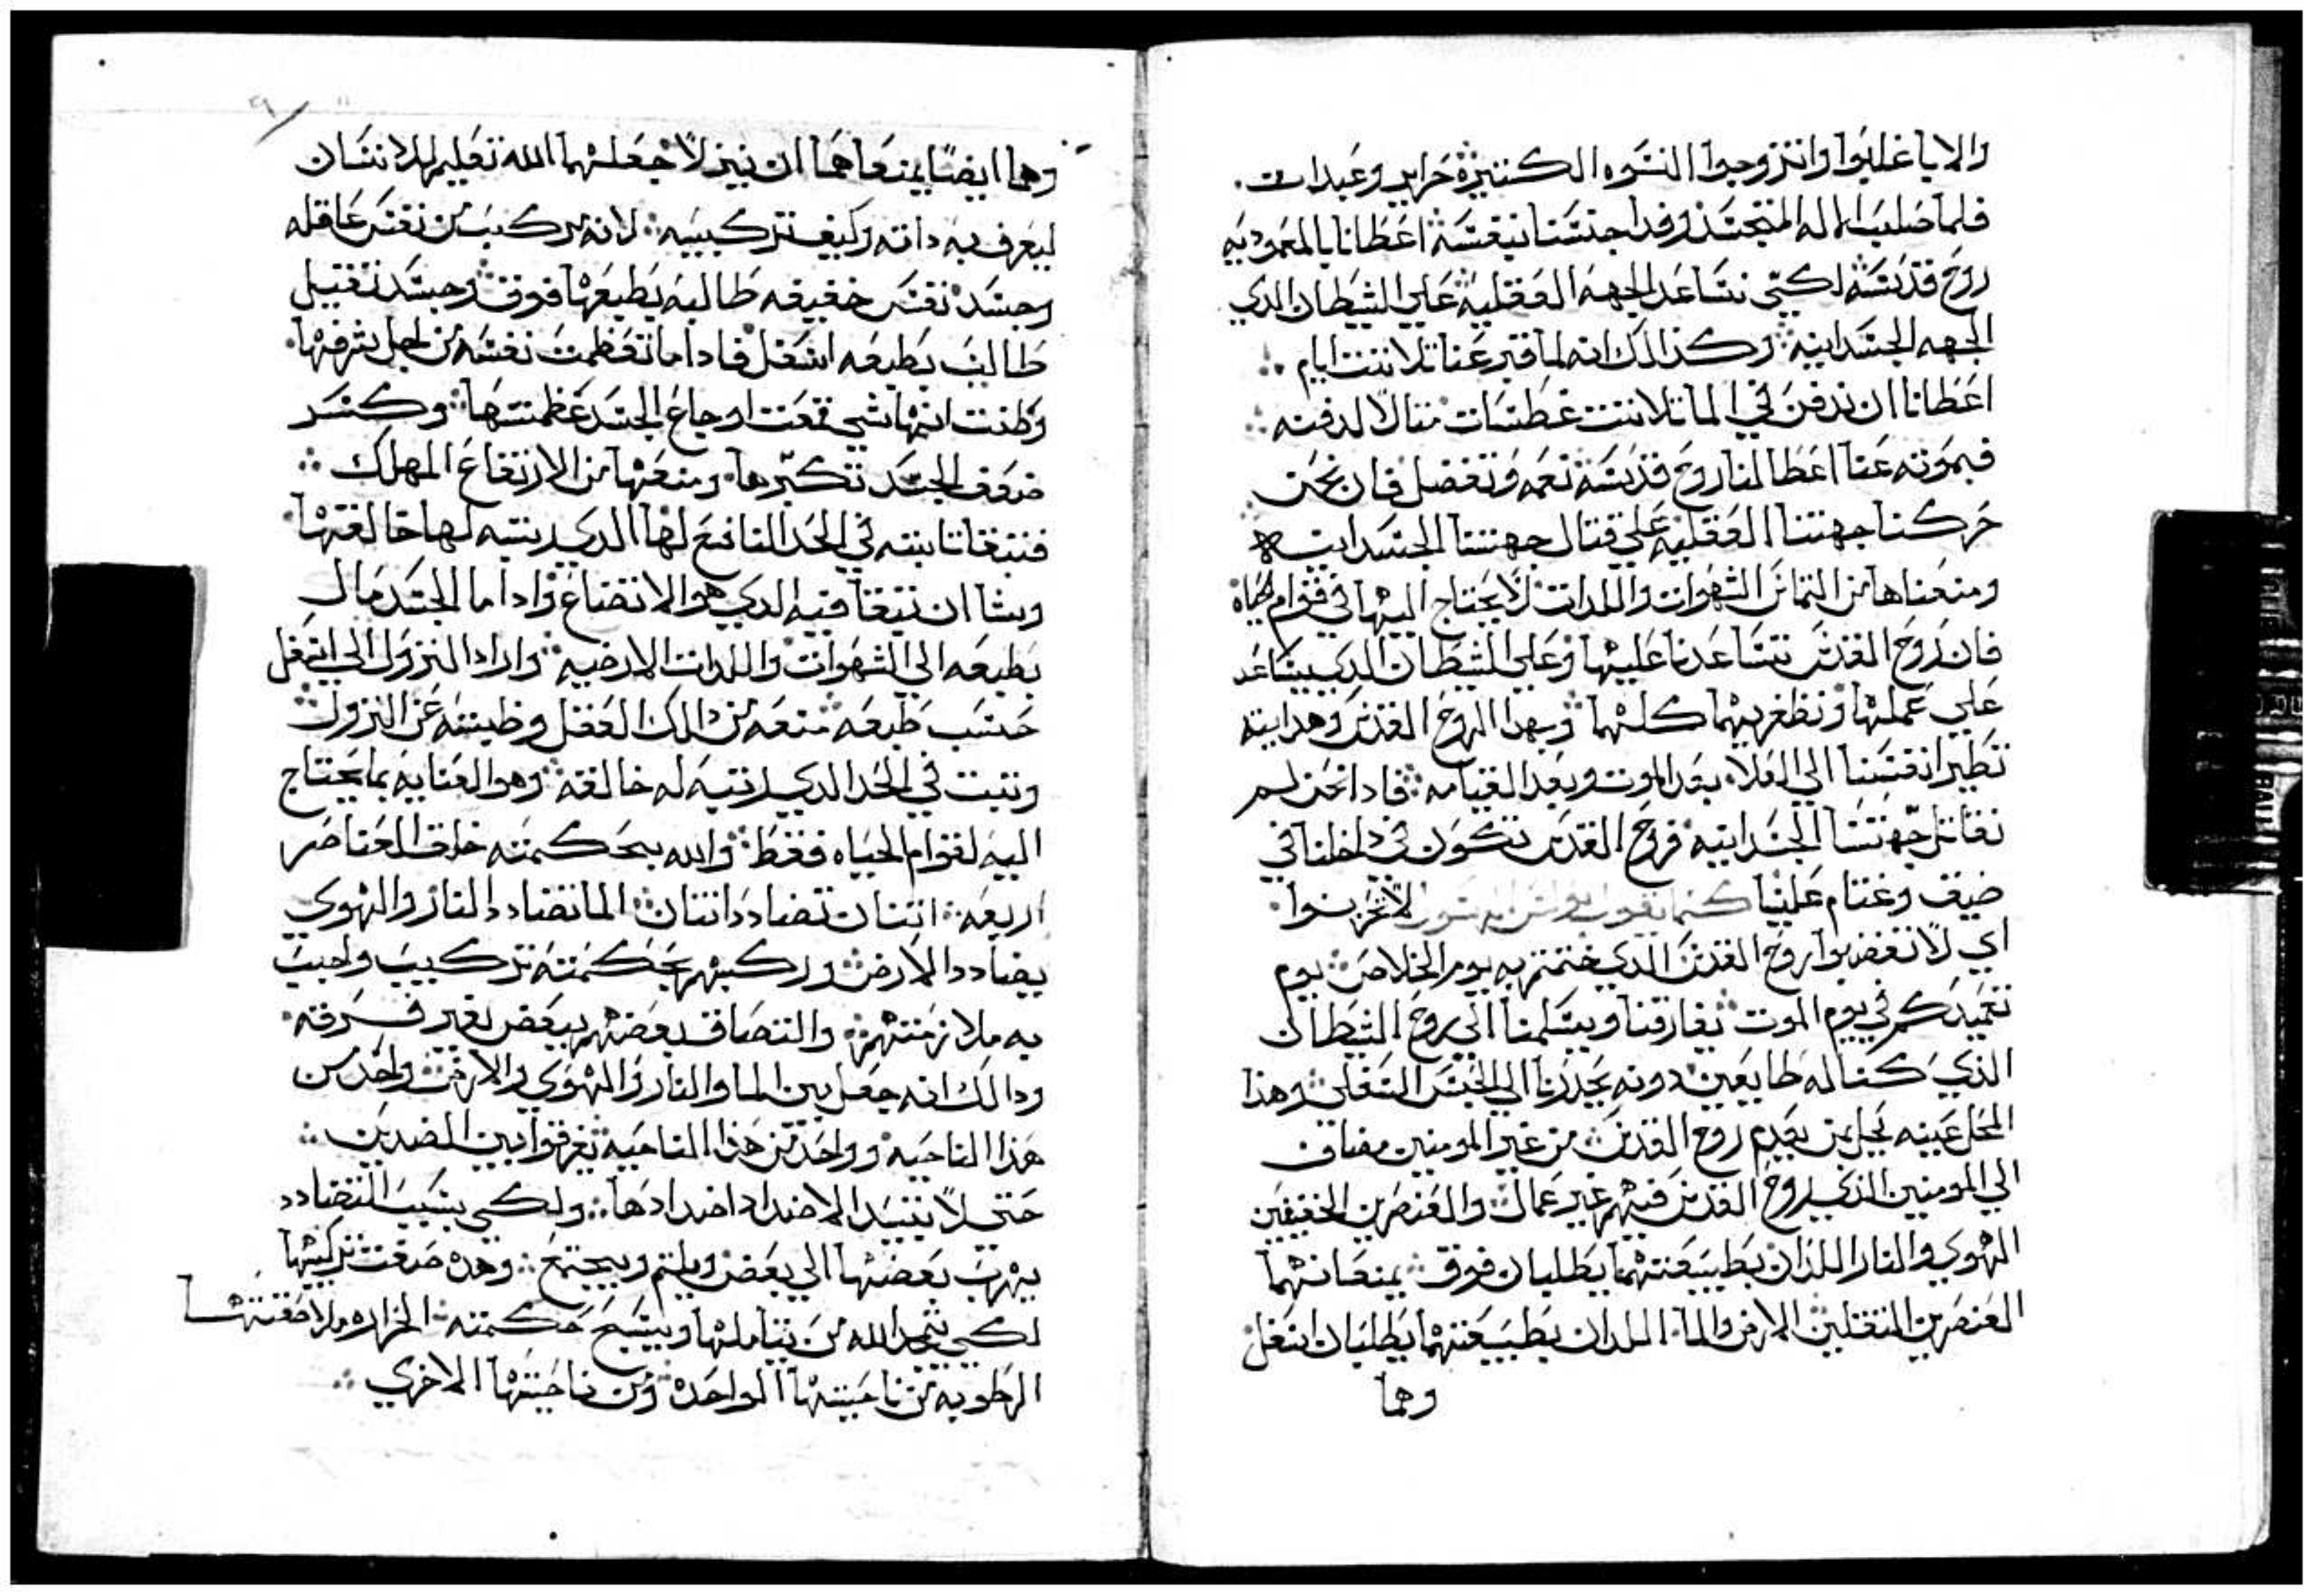 والابا غلبوا وانتزوجوا النسوه الكتيرة حراير وعبدات
فلما صلب الاله المتجسد وفدا جنسنا بنفسه اعطانا بالمعموديه
روح قدسه لكي نساعد الجهه العقليه علي الشيطان الدي
الجهه الجسدانيه وكذالك انه لما قبر عنا تلاتت ايام
اعطانا ان ندفن في الما تلاتت غطسات متالا لدفنه
فبموته عنا اعطا لنا روح قدسه نعمه وتفضل فان نحن
حركنا جهتنا العقليه علي قتال جهتنا الجسدانيه
ومنعناها من التماس الشهوات واللدات لا يحتاج اليها في قوام الحياة
فان روح القدس تساعدنا عليها وعلي الشيطان الدي يساعد
علي عملها ونظفر بهما كلهما وبهدا الروح القدس وهدايته
تطير انفسنا الي العلا بعد الموت وبعد القيامه فادا نحن لم
نقاتل جهتنا الجسدانيه فروح القدس تكون في داخلنا في
ضيق وغتام علينا كما يقول بولس الرسول لا تحزنوا
اي لا تغضبوا روح القدس الدي ختمتم به يوم الخلاص يوم
تعميدكم في يوم الموت تفارقنا ويسلمنا الي روح الشيطان
الذي كنا له طايعين دونه يحدرنا الي الحبس السفلي وهذا
المحل عينه يحل بمن يعدم روح القدس من غير المومنين مضاف
الي المومنين الذي روح القدس فيهم غير عمال والعنصرين الخفيفين
الهوي والنار اللذان بطبيعتهما يطلبان فوق يمنعانهما
العنصرين التقلين الارض والما اللدان بطبيعتهما يطلبان اسفل
وهما
وهما ايضا يمنعاهما ان ينزلا جعلهما الله تعليم للانسان
ليعرف به داته وكيف تركيبه لانه مركب من نفس عاقله
وجسد نفس خفيفه طالبه بطبعها فوق وجسد تقيل
طالب بطبعه اسفل فادا ما تعظمت نفسه من اجل شرفها
وظنت انها شي قمعت اوجاع الجسد عظمتها وكسر
ضعف الجسد تكبرها ومنعها من الارتفاع المهلك
فتبقا تابته في الحد النافع لها الدي رتبه لها خالقها
وشا ان تبقا فيه الدي هو الاتضاع وادا ما الجسد مال
بطبعه الي الشهوات واللدات الارضيه واراد النزول الي اسفل
حسب طبعه منعه من دالك العقل وضبته عن النزول
وتبت في الحد الدي رتبه له خالقه وهو العنايه بما يحتاج
اليه لقوام الحياه فقط والله بحكمته خلق العناصر
اربعه اتنان تضادد اتنان الما تضادد النار والهوي
يضادد الارض وركبهم بحكمته تركيب واجب
به ملازمتهم والتصاق بعضهم ببعض بغير فرقه
ودالك انه جعل بين الما والنار والهوي والارض واحد من
هذا الناحيه وواحد من هذا الناحيه يفرقوا بين الضدين
حتي لا تبيد الاضداد اضدادها ولكي بسبب التضادد
يهرب بعضها الي بعض ويلتم ويجتمع وهده صفت تركيبها
لكي يمجد الله من يتاملها ويسبح حكمته الحراره ملاصقتها
الرطوبه من ناحيتها الواحده ومن ناحيتها الاخري